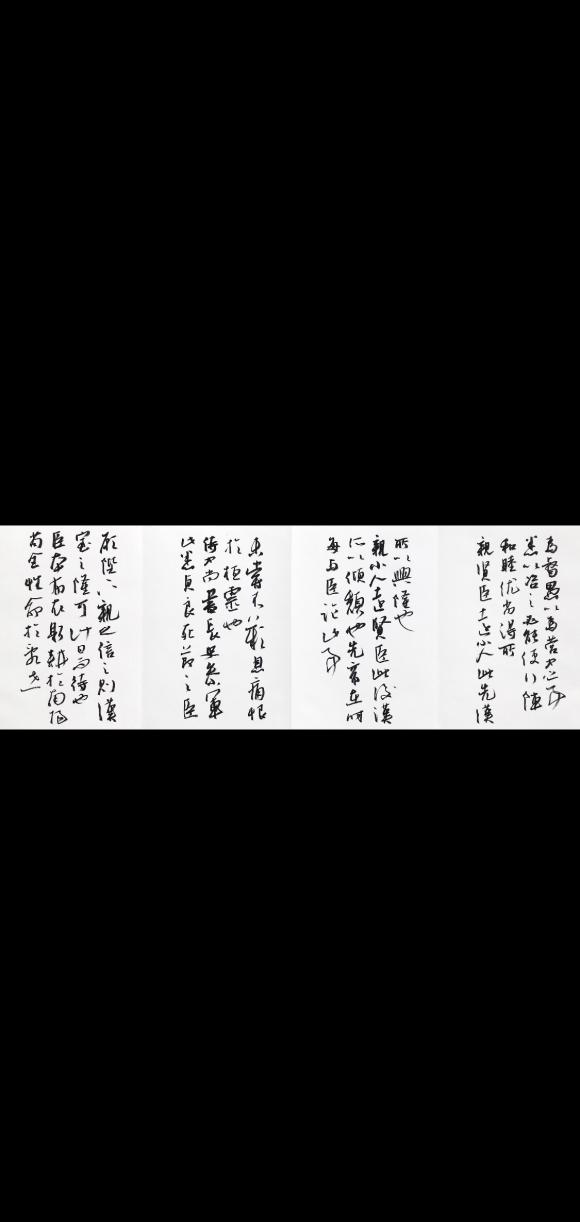 為督愚以為營中之事
悉以咨之必能使行陣
和睦优劣得所
親賢臣遠小人此先漢
所以興隆也
親小人遠賢臣此後漢
所以傾頹也先帝在時
每与臣論此事
未嘗不歎息痛恨
於桓靈也
侍中尚書長史參軍
此悉貞良死節之臣
願陛下親之信之則漢
室之隆可計日而待也
臣本布衣躬耕於南陽
苟全性命於亂世